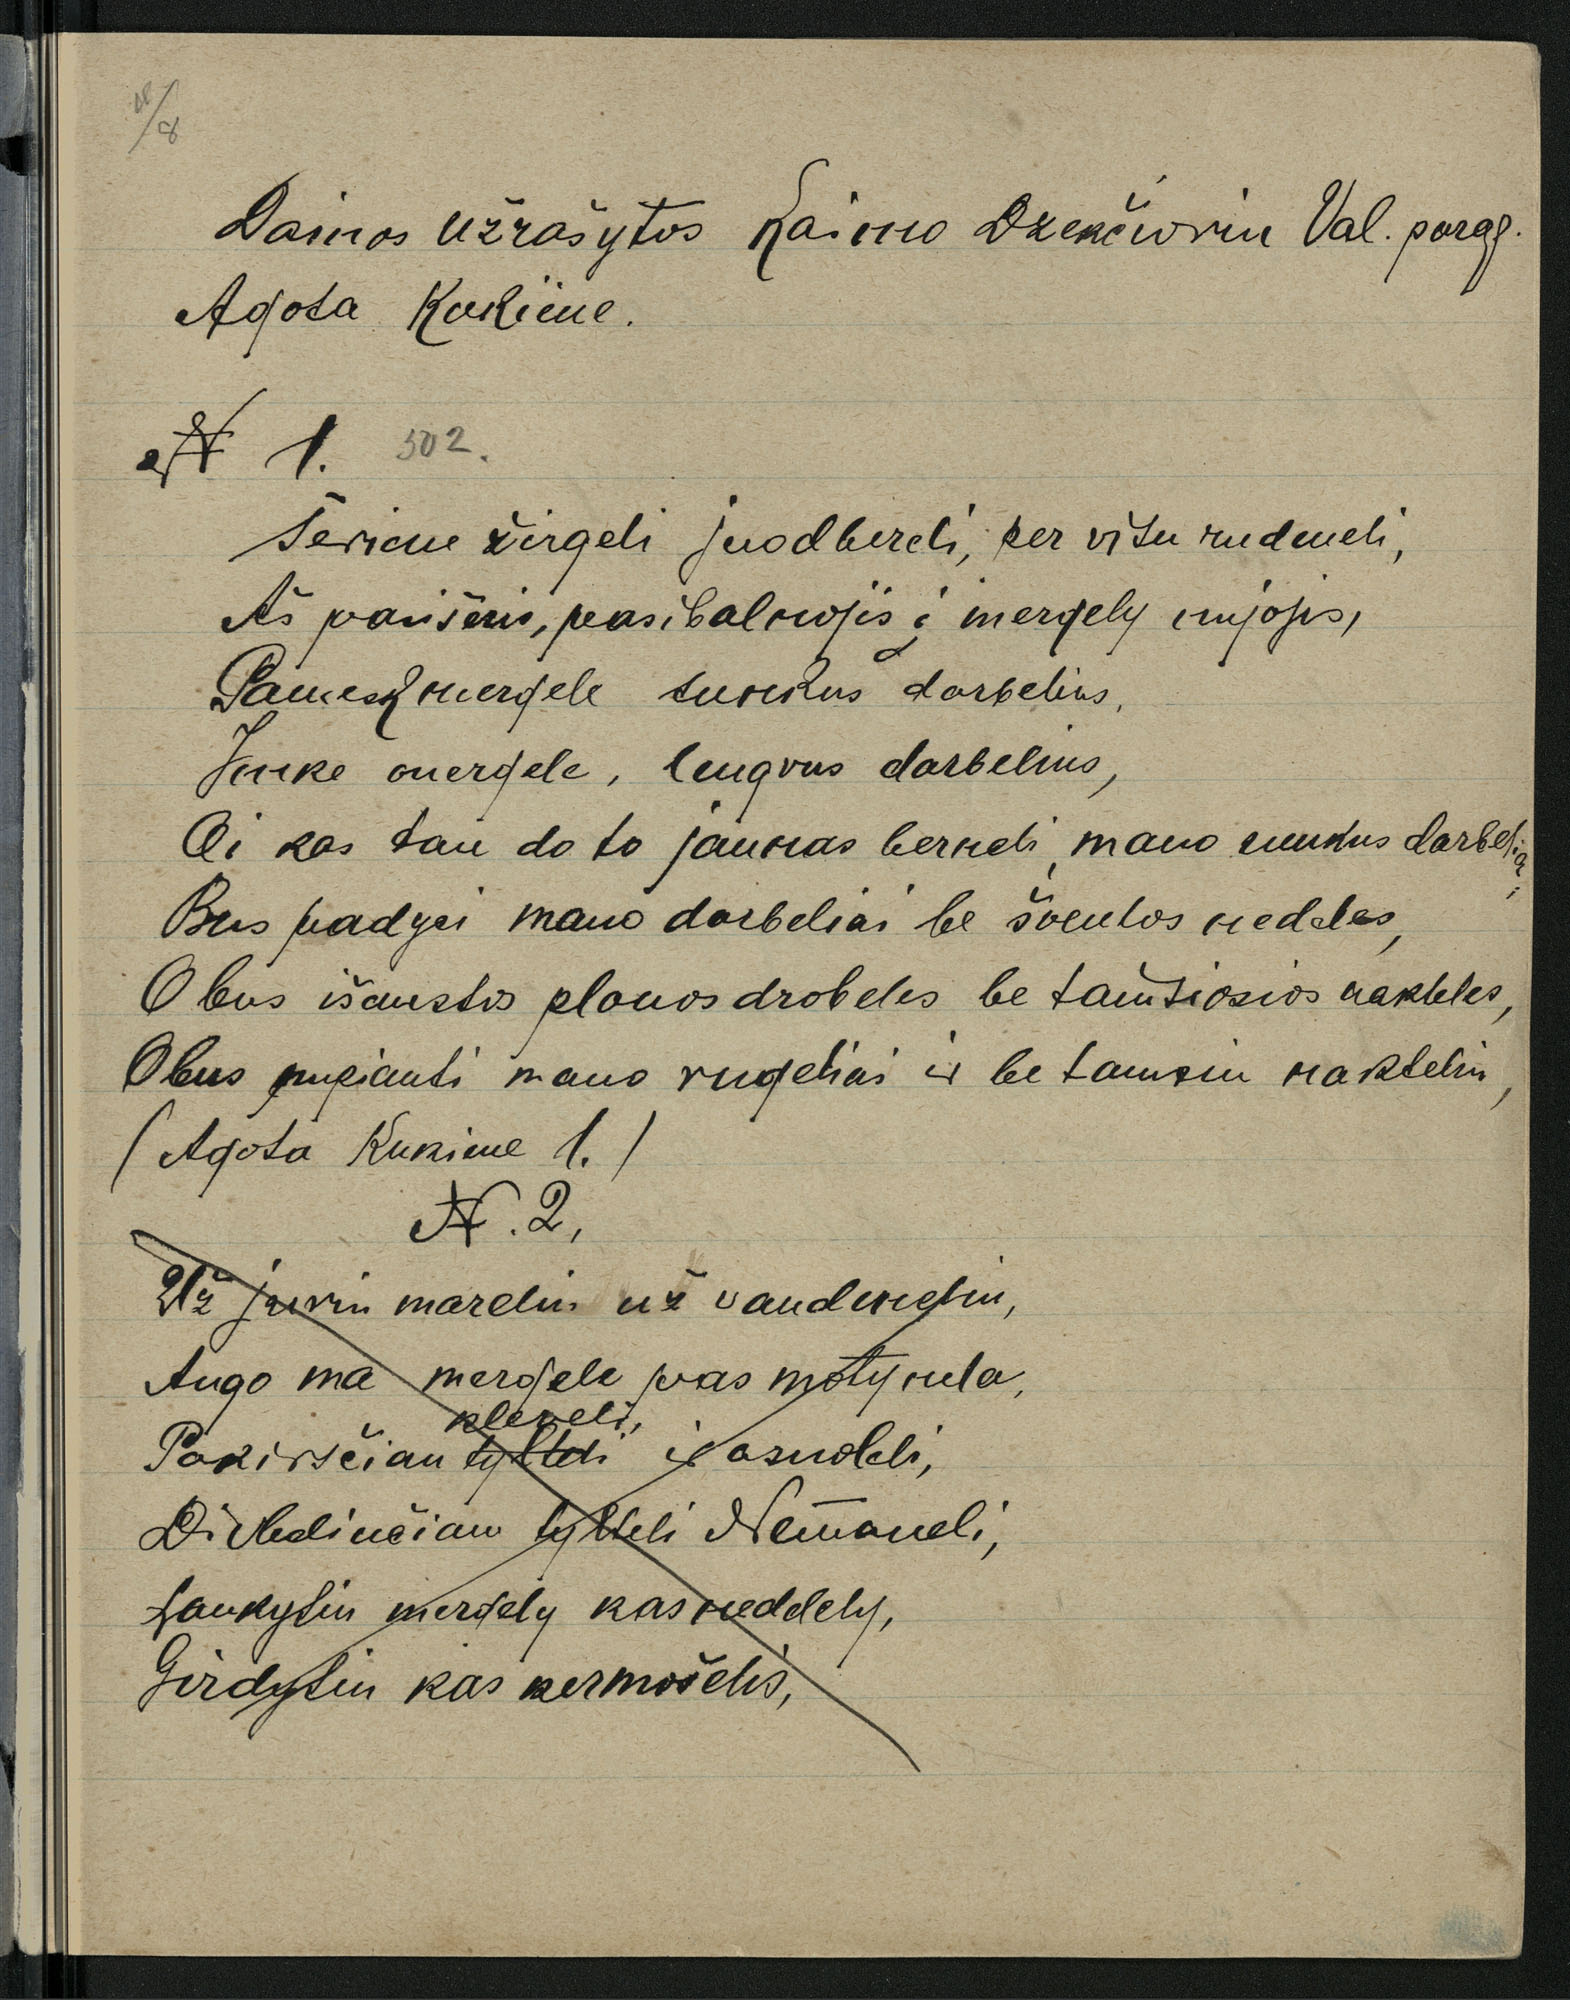 Dainos užrašytos Kaimo Dzekčiorin Val. paragg.
Agota Kukiene.
N 1. 302.
Šeriau žirgeli juodbereli, per visu rudeneli,
Aš pasišeris, pasibalnojis į mergely nujojis,
Pamesk mergele sunkus darbelius,
Imke mergele, lengvus darbelius,
Oi kas tau do to jaunas berneli, mano sunkus darbeliai,
Bus padyti mano darbeliai be šventos nedeles,
O bus išaustos plonos drobeles be tamsiosios nakteles,
O bus nupianti mano rugeliai ir be tamsiu nakteliu,
(Agota Kukiene 1.)
N. 2,
Už juriu mareliu už vandeneliu,
Augo ma mergele pas motynela,
kleveli,
Pakirsčiau tylteli ir azuoleli,
Didledinčiau tylteli Nemaneli,
Lankytiu mergely kas nedelely,
Girdytiu kas kermošelis,